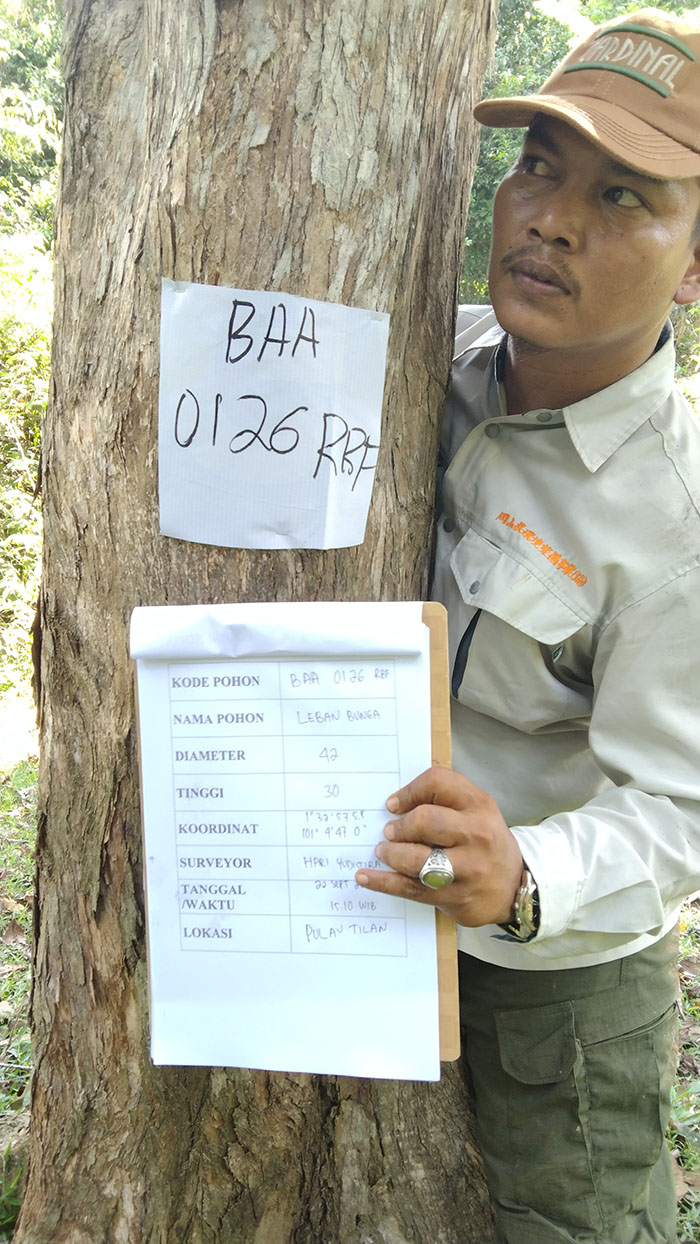 CARDINAL
BAA
0126 RBF
KODE POHON BAA 0126 RBF
NAMA POHON LEBAN BUNGA
DIAMETER 42
TINGGI 30
KOORDINAT
101° 4'47 0"
SURVEYOR HARI
TANGGAL 22 SEPT
/WAKTU 15 10 WIB
LOKASI PULAU TILAN